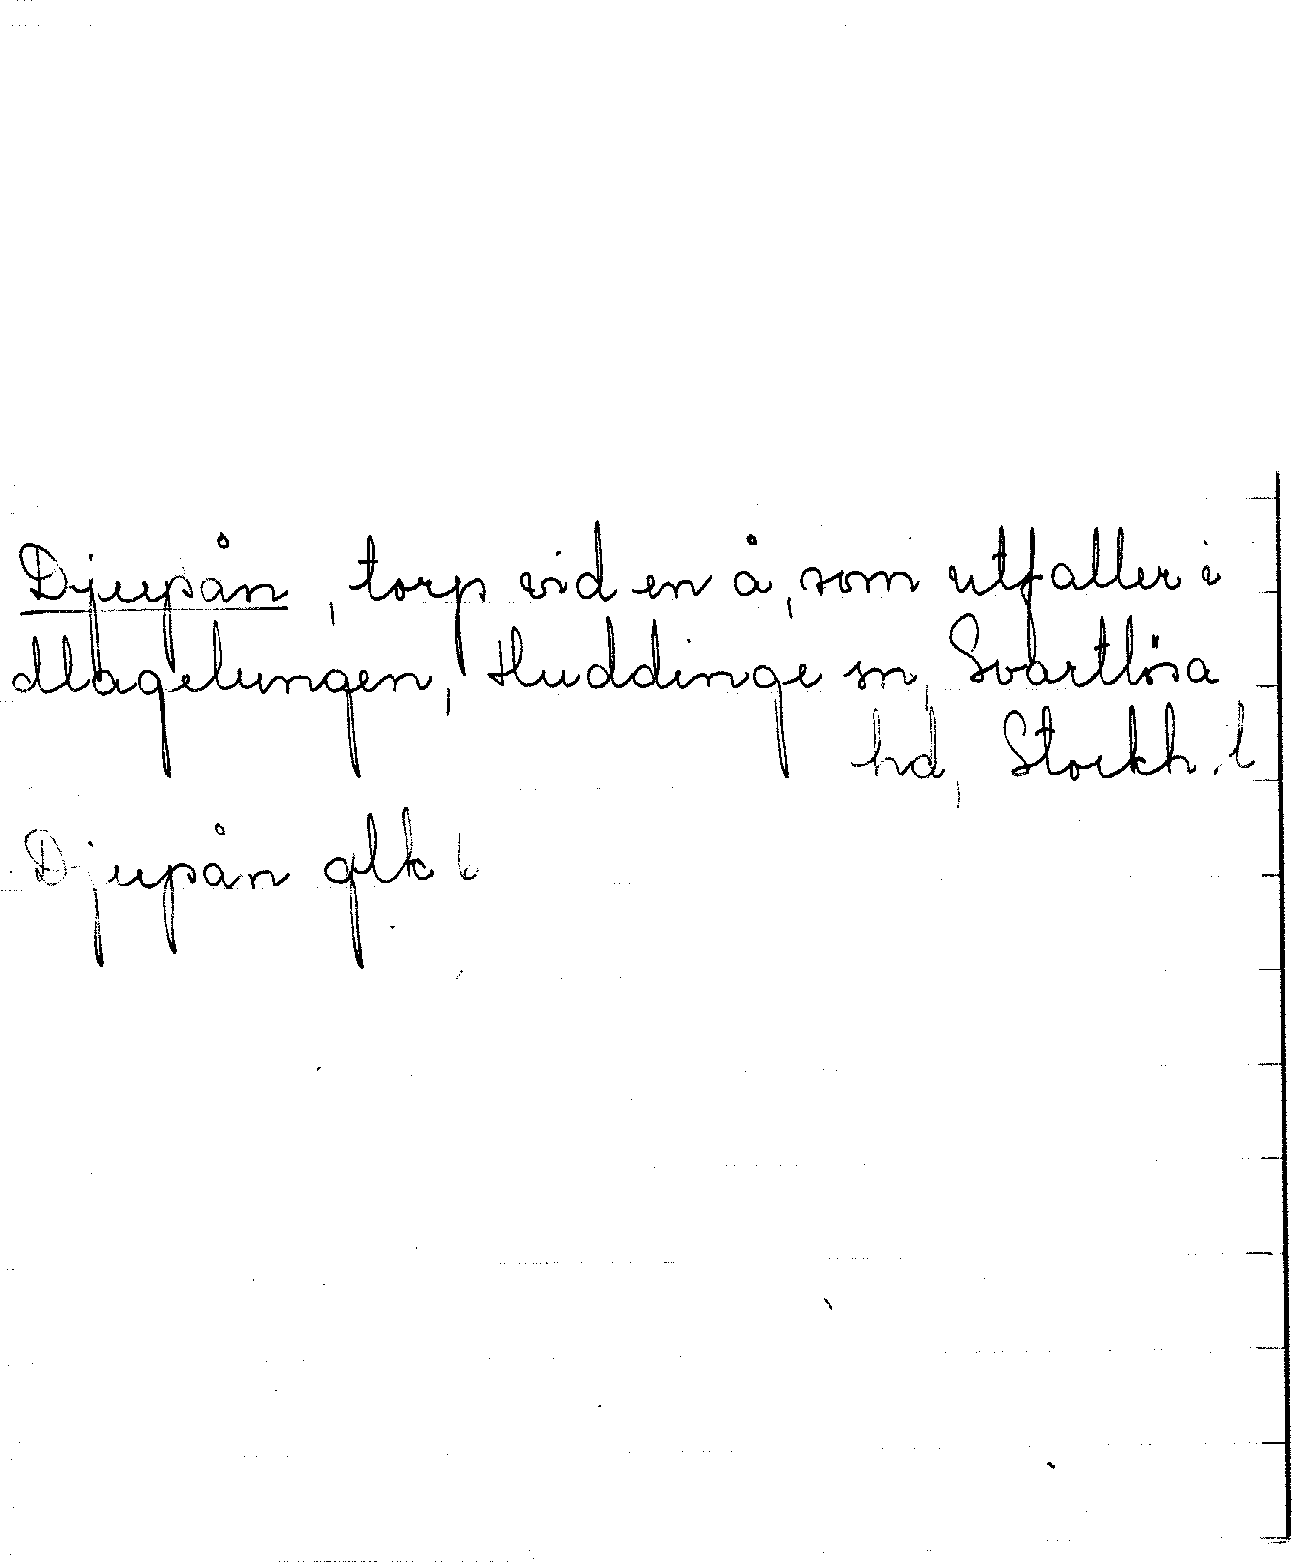 Djupån, torp vid en å, som utfaller i
Magelungen, Huddinge sn, Svartlösa
hd, Stockh. l
Djupån glk